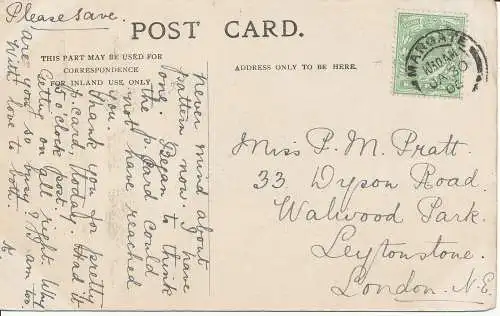 Please save.
POST CARD.
THIS PART MAY BE USED FOR
CORRESPONDENCE
FOR INLAND USE ONLY.
ADDRESS ONLY TO BE HERE.
MARGATE
10.30AM
JA 30
never mind about
pattern now. I have
one. Began to think
the p. card could
not have reached
you.
Thank you for pretty
p. card, today. Had it
5 o'clock post.
Getting on all right. Why
are you so busy? I am too.
With love to both.
Miss P. M. Pratt.
33 Dyson Road.
Walwood Park.
Leytonstone.
London. N.E.